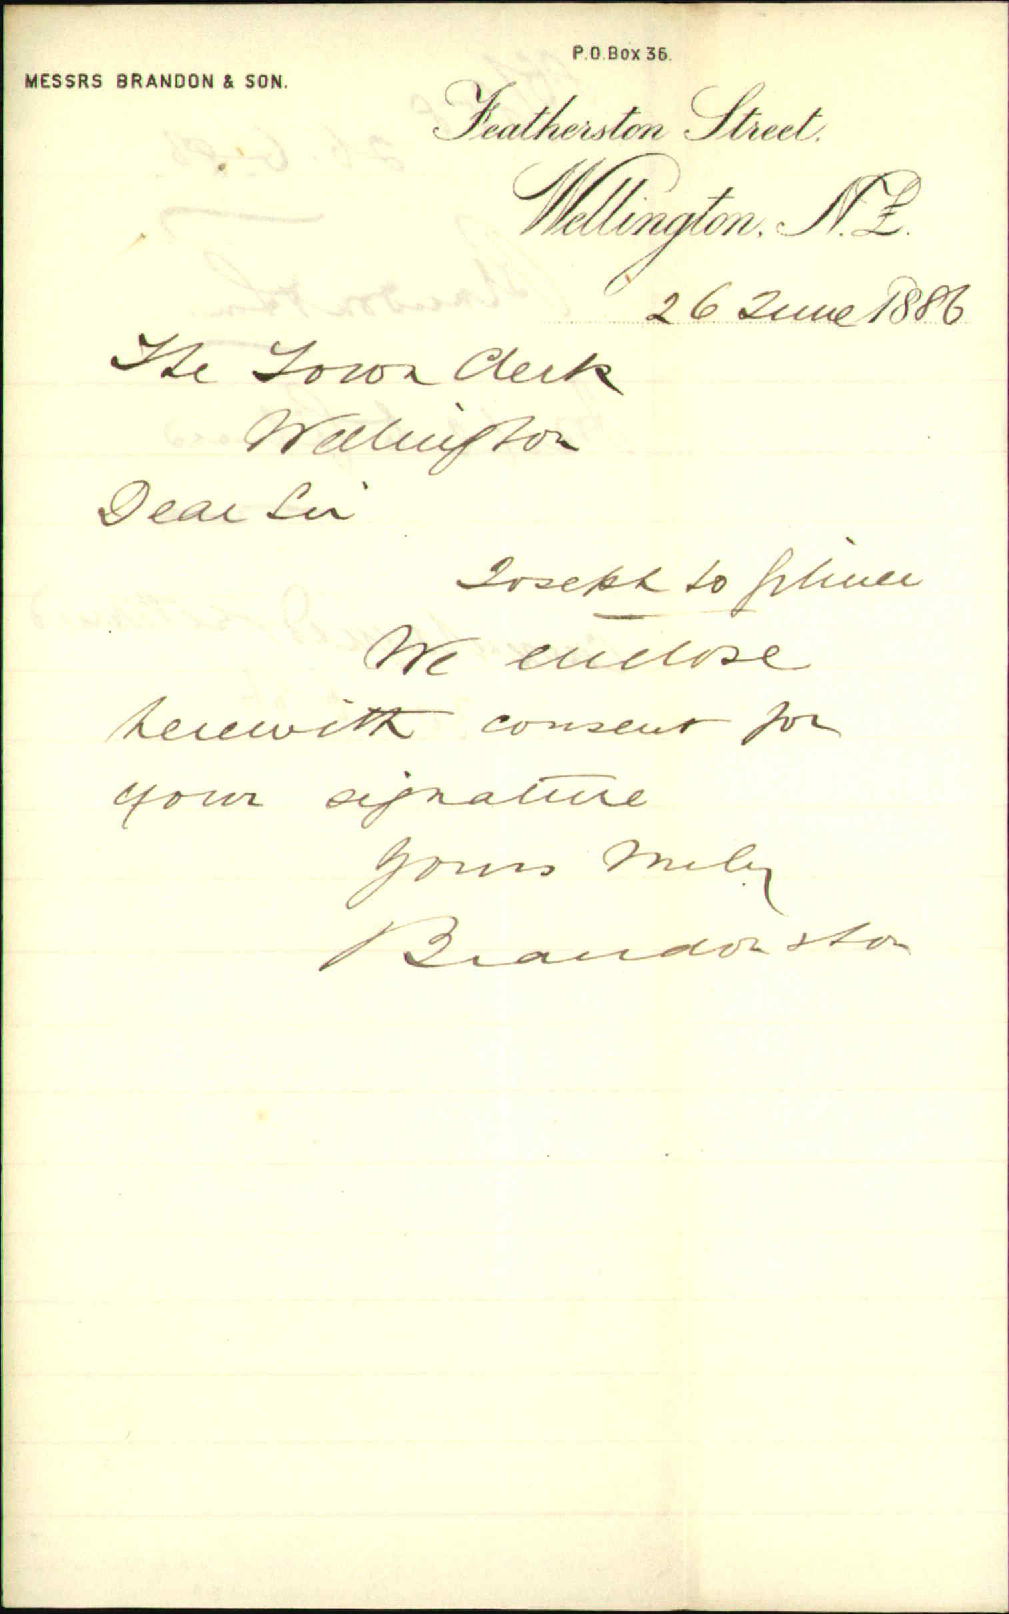 P.O.Box 36.
MESSRS BRANDON & SON.
Featherston Street.
Wellington, N.Z.
26 June 1886
The Town Clerk
Wellington
Dear Sir
Joseph to
We enclose
herewith consent for
your signature
Yours truly
Brandon & Son